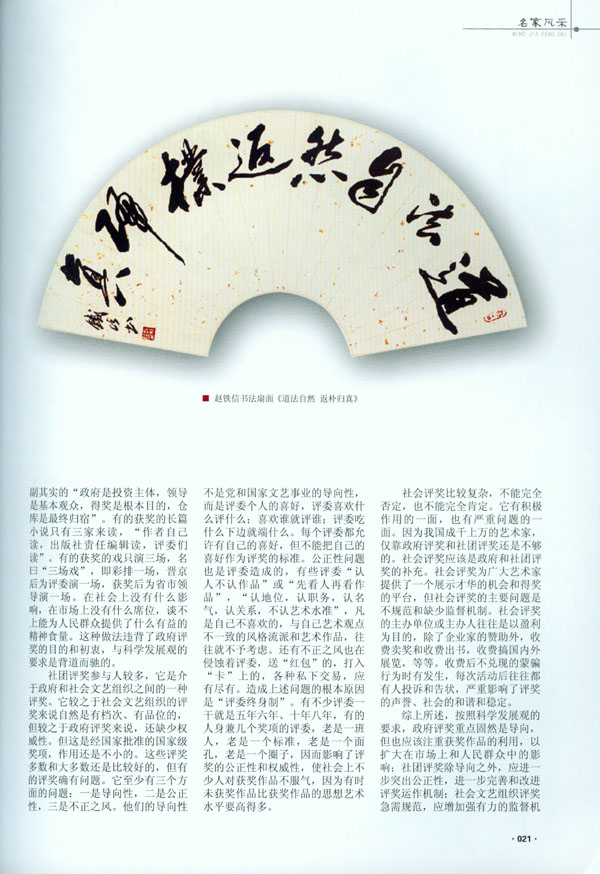 名家风采
MING JIA FENG CAI
道法自然返樸歸真
鐵信书
■ 赵铁信书法扇面《道法自然 返朴归真》
副其实的“政府是投资主体，领导
是基本观众，得奖是根本目的，仓
库是最终归宿”。有的获奖的长篇
小说只有三家来读，“作者自己
读，出版社责任编辑读，评委们
读”。有的获奖的戏只演三场，名
曰“三场戏”，即彩排一场，晋京
后为评委演一场，获奖后为省市领
导演一场。在社会上没有什么影
响，在市场上没有什么席位，谈不
上能为人民群众提供了什么有益的
精神食量。这种做法违背了政府评
奖的目的和初衷，与科学发展观的
要求是背道而驰的。
社团评奖参与人较多，它是介
于政府和社会文艺组织之间的一种
评奖。它较之于社会文艺组织的评
奖来说自然是有档次、有品位的，
但较之于政府评奖来说，还缺少权
威性。但这是经国家批准的国家级
奖项，作用还是不小的。这些评奖
多数和大多数还是比较好的，但有
的评奖确有问题。它至少有三个方
面的问题：一是导向性，二是公正
性，三是不正之风。他们的导向性
不是党和国家文艺事业的导向性，
而是评委个人的喜好，评委喜欢什
么评什么；喜欢谁就评谁；评委吃
什么下边就端什么。每个评委都允
许有自己的喜好，但不能把自己的
喜好作为评奖的标准。公正性问题
也是评委造成的，有些评委“认
人不认作品”或“先看人再看作
品”，“认地位，认职务，认名
气，认关系，不认艺术水准”，凡
是自己不喜欢的，与自己艺术观点
不一致的风格流派和艺术作品，往
往就不予考虑。还有不正之风也在
侵蚀着评委，送“红包”的，打入
“卡”上的，各种私下交易，应
有尽有。造成上述问题的根本原因
是“评委终身制”。有不少评委一
干就是五年六年、十年八年，有的
人身兼几个奖项的评委，老是一班
人，老是一个标准，老是一个面
孔，老是一个圈子，因而影响了评
奖的公正性和权威性，使社会上不
少人对获奖作品不服气，因为有时
未获奖作品比获奖作品的思想艺术
水平要高得多。
社会评奖比较复杂，不能完全
否定，也不能完全肯定。它有积极
作用的一面，也有严重问题的一
面。因为我国成千上万的艺术家，
仅靠政府评奖和社团评奖还是不够
的。社会评奖应该是政府和社团评
奖的补充。社会评奖为广大艺术家
提供了一个展示才华的机会和得奖
的平台，但社会评奖的主要问题是
不规范和缺少监督机制。社会评奖
的主办单位或主办人往往是以盈利
为目的，除了企业家的赞助外，收
费卖奖和收费出书，收费搞国内外
展览，等等。收费后不兑现的蒙骗
行为时有发生，每次活动后往往都
有人投诉和告状，严重影响了评奖
的声誉、社会的和谐和稳定。
综上所述，按照科学发展观的
要求，政府评奖重点固然是导向，
但也应该注重获奖作品的利用，以
扩大在市场上和人民群众中的影
响；社团评奖除导向之外，应进一
步突出公正性，进一步完善和改进
评奖运作机制；社会文艺组织评奖
急需规范，应增加强有力的监督机
·021·